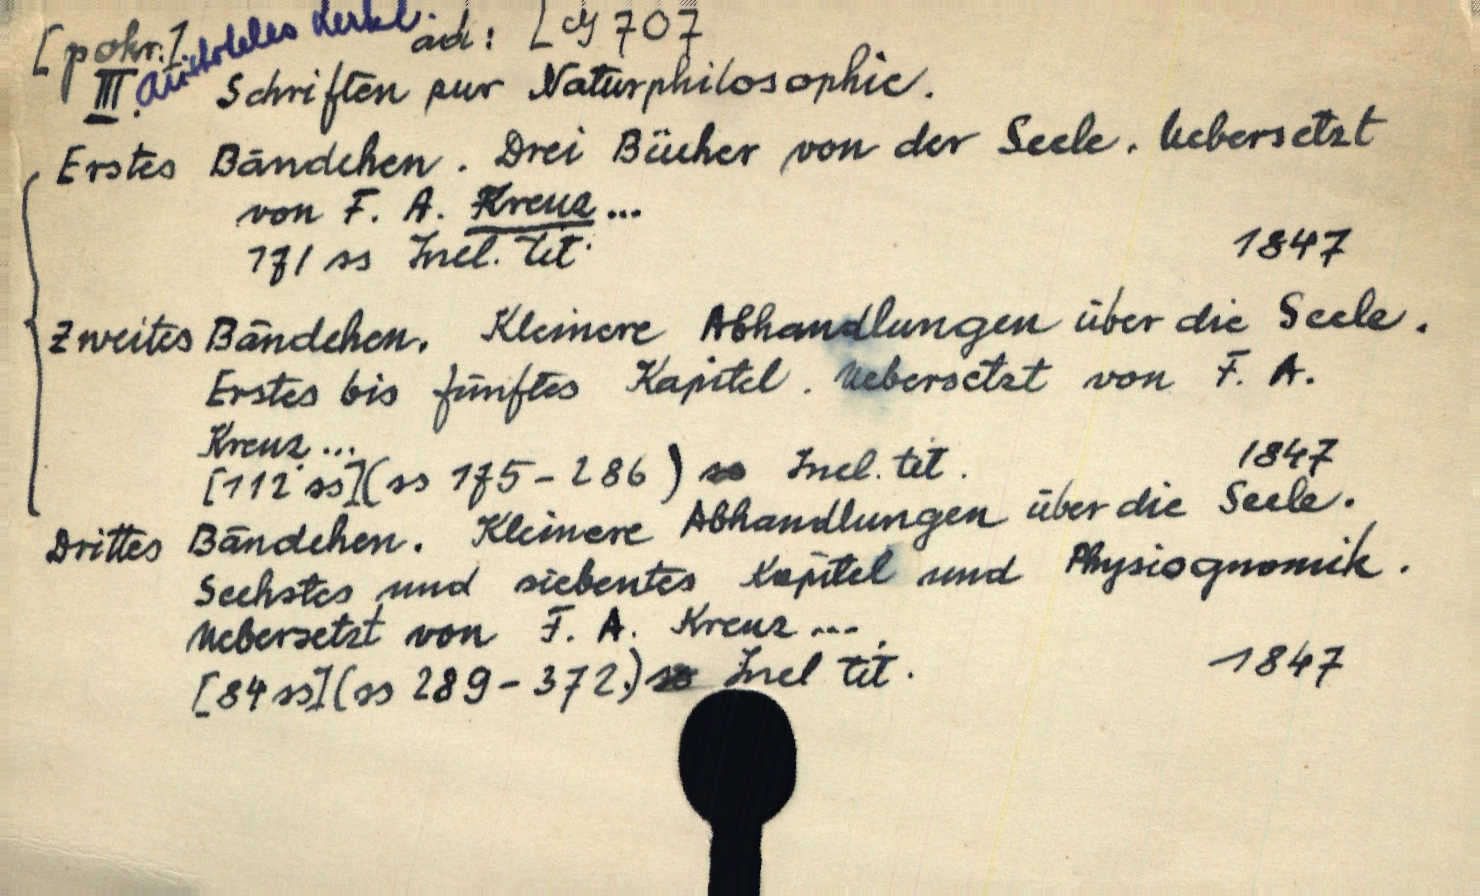 [pokr.] Aristoteles Werke. ad: Lg 707
III. Schriften zur Naturphilosophie.
Erstes Bändchen. Drei Bücher von der Seele. Uebersetzt
von F. A. Kreuz...
171 ss Incl. tit.
1847
Zweites Bändchen. Kleinere Abhandlungen über die Seele.
Erstes bis fünftes Kapitel. Uebersetzt von F. A.
Kreuz...
[112 ss] (ss 175-286) Incl. tit.
1847
Drittes Bändchen. Kleinere Abhandlungen über die Seele.
Sechstes und siebentes Kapitel und Physiognomik.
Uebersetzt von F. A. Kreuz...
[84 ss] (ss 289-372) Incl tit.
1847